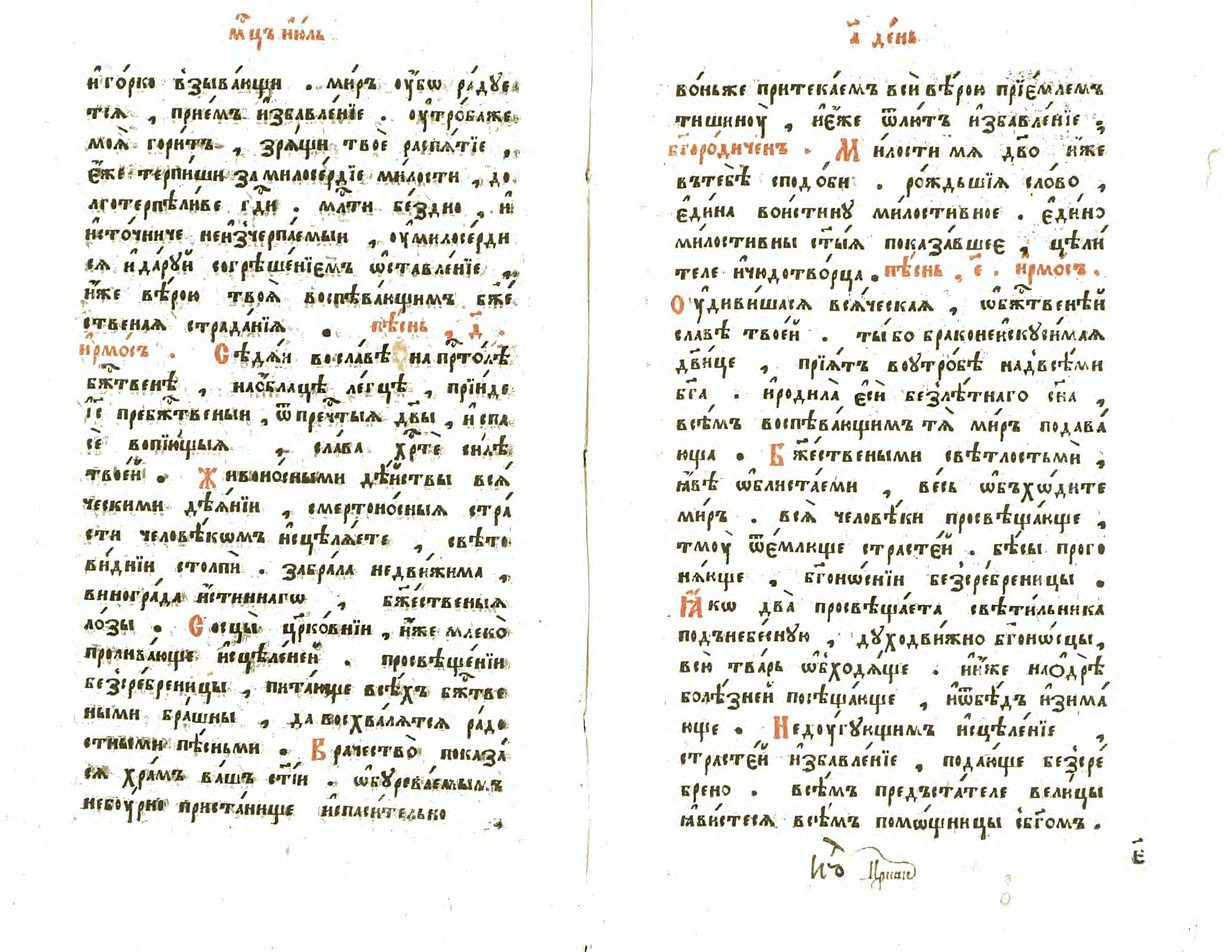 мц҃ъ ию́ль
и҆го́рко вз̾ыва́ющи . ми́ръ оу҆́бѡ ра́дуе
тсѧ , прие́мъ и҆збавле́нїе . оу҆тро́баже
моѧ̀ гори́тъ , зрѧ́щи твоѐ распѧ́тїе ,
є҆́же терпи́ши замилосе́рдїе ми́лости , до
лготерпѣли́ве гд҇и . мл҇ти бе́здно , и҆
и҆сто́чниче неиз̾черпа́емыи , оу҆милосе́рди
сѧ и҆да́руй согрѣше́нїемъ ѡ҆ставле́нїе ,
и҆́же вѣ́рою твоѧ̀ воспѣва́ющимъ бж҇е́
ственаѧ страда́нїѧ . пѣ́снь , д҃ .
и҆рмо́съ . Сѣдѧ́и восла́вѣ напр҇то́лѣ
бж҇твенѣ , нао҆́блацѣ ле́гцѣ , прїи́де
і҆с҃ пребж҇твеныи , ѿпреч҇тыѧ дв҃ы , и҆спа
сѐ вопїю́щыѧ , сла́ва хр҇тѐ си́лѣ
твое́й . Живоно́сными дѣ́йствы всѧ́
ческими дѣѧ́нїи , смертоно́сныѧ стра
сти человѣ́кѡмъ и҆сцѣлѧ́ете , свѣто
ви́днїи столпѝ . забра́ла недви́жима ,
виногра́да и҆́стиннагѡ , бж҇е́ственыѧ
ло́зы . Сосцы̀ цр҃ко́внїи , и҆̀же млеко̀
пролива́юще и҆сцѣле́ней . просвѣще́нїи
без̾сре́бреницы , пита́юще всѣ́хъ бж҇тве
ными бра́шны , да восхва́лѧтсѧ ра́до
стными пѣ́сньми . Врачество̀ показа́
сѧ хра́мъ ва́шъ ст҃і́и . ѡ҆бурева́емымъ
небоу́рно приста́нище и҆спаси́телько
а҃ де́нь
во́ньже притека́емъ вси̑ вѣ́рою прїе́млемъ
тишиноу̀ , и҆є҆́же ѿлю́тъ и҆збавле́нїе ;
бг҃оро́диченъ . Ми́лости мѧ дв҃о и҆́же
втебѣ̀ сподо́би . ро́ждьшїѧ сло́во ,
є҆ди́на вои́стину ми́лостивное . є҆ди́но
ми́лостивны ст҃ы́ѧ показа́вшее , цѣли́
теле и҆чюдотво́рца . пѣ́снь , е҃ . и҆рмо́съ .
Оу҆диви́шасѧ всѧ́ческаѧ , ѡ҆бж҇твенѣ́й
сла́вѣ твое́й . ты́бо браконеиску́симаѧ
дв҃и́це , прїѧ́тъ воутро́бѣ надвсѣ́ми
бг҃а . и҆роди́ла є҆сѝ безлѣ́тнаго сн҃а ,
всѣ́мъ воспѣва́ющимъ тѧ̀ ми́ръ подава́
юща . Бж҇е́ствеными свѣ́тлостьми ,
ꙗ҆́вѣ ѡ҆блиста́еми , ве́сь ѡ҆бъхѡ́дите
ми́ръ . всѧ̀ человѣ́ки просвѣща́юще ,
тмоу̀ ѿе́млюще страсте́й . бѣ́сы прого
нѧ́юще , бг҃оно́снїи без̾сре́бреницы .
Ꙗ҆́кѡ два̀ просвѣща́ета свѣти́льника
подънебе́сную , духодви́жно бг҃оно́сцы,
всю̀ тва́рь ѡ҆бходѧ́ще . и҆и҆́же нао҆дрѣ̀
болѣ́зней посѣща́юще , и҆ѿбѣ́дъ и҆зима́
юще . Недоу́гующимъ и҆сцѣле́нїе ,
страсте́й и҆збавле́нїе , подаю́ще без̾сре́
брено . всѣ́мъ предъста́теле вели́цы
ꙗ҆ви́стесѧ всѣ́мъ помо́щницы сбг҃омъ .
е҃